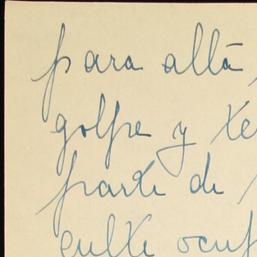 para allá,
golpe y te
parte de
culte ocup